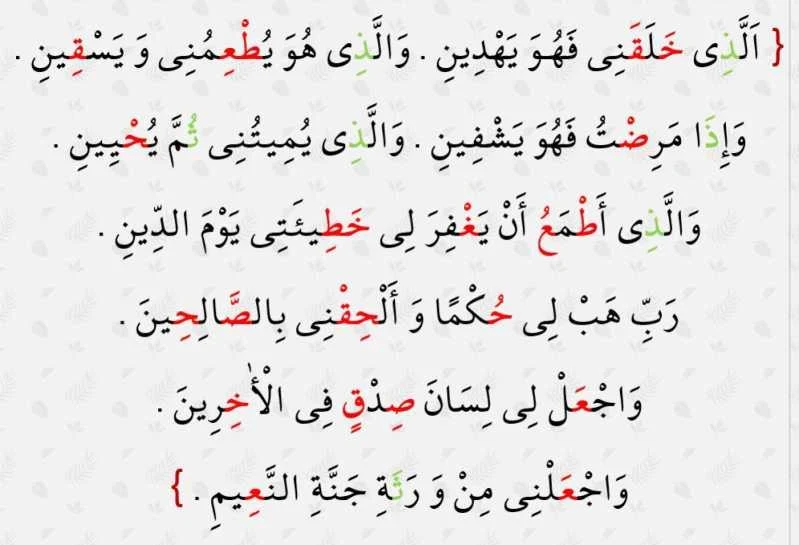 { اَلَّذِى خَلَقَنِى فَهُوَ يَهْدِينِ . وَالَّذِى هُوَ يُطْعِمُنِى وَ يَسْقِينِ .
وَإِذَا مَرِضْتُ فَهُوَ يَشْفِينِ . وَالَّذِى يُمِيتُنِى ثُمَّ يُحْيِينِ .
وَالَّذِى أَطْمَعُ أَنْ يَغْفِرَ لِى خَطِيئَتِى يَوْمَ الدِّينِ .
رَبِّ هَبْ لِى حُكْمًا وَ أَلْحِقْنِى بِالصَّالِحِينَ .
وَاجْعَلْ لِى لِسَانَ صِدْقٍ فِى الْأٰخِرِينَ .
وَاجْعَلْنِى مِنْ وَ رَثَةِ جَنَّةِ النَّعِيمِ . }